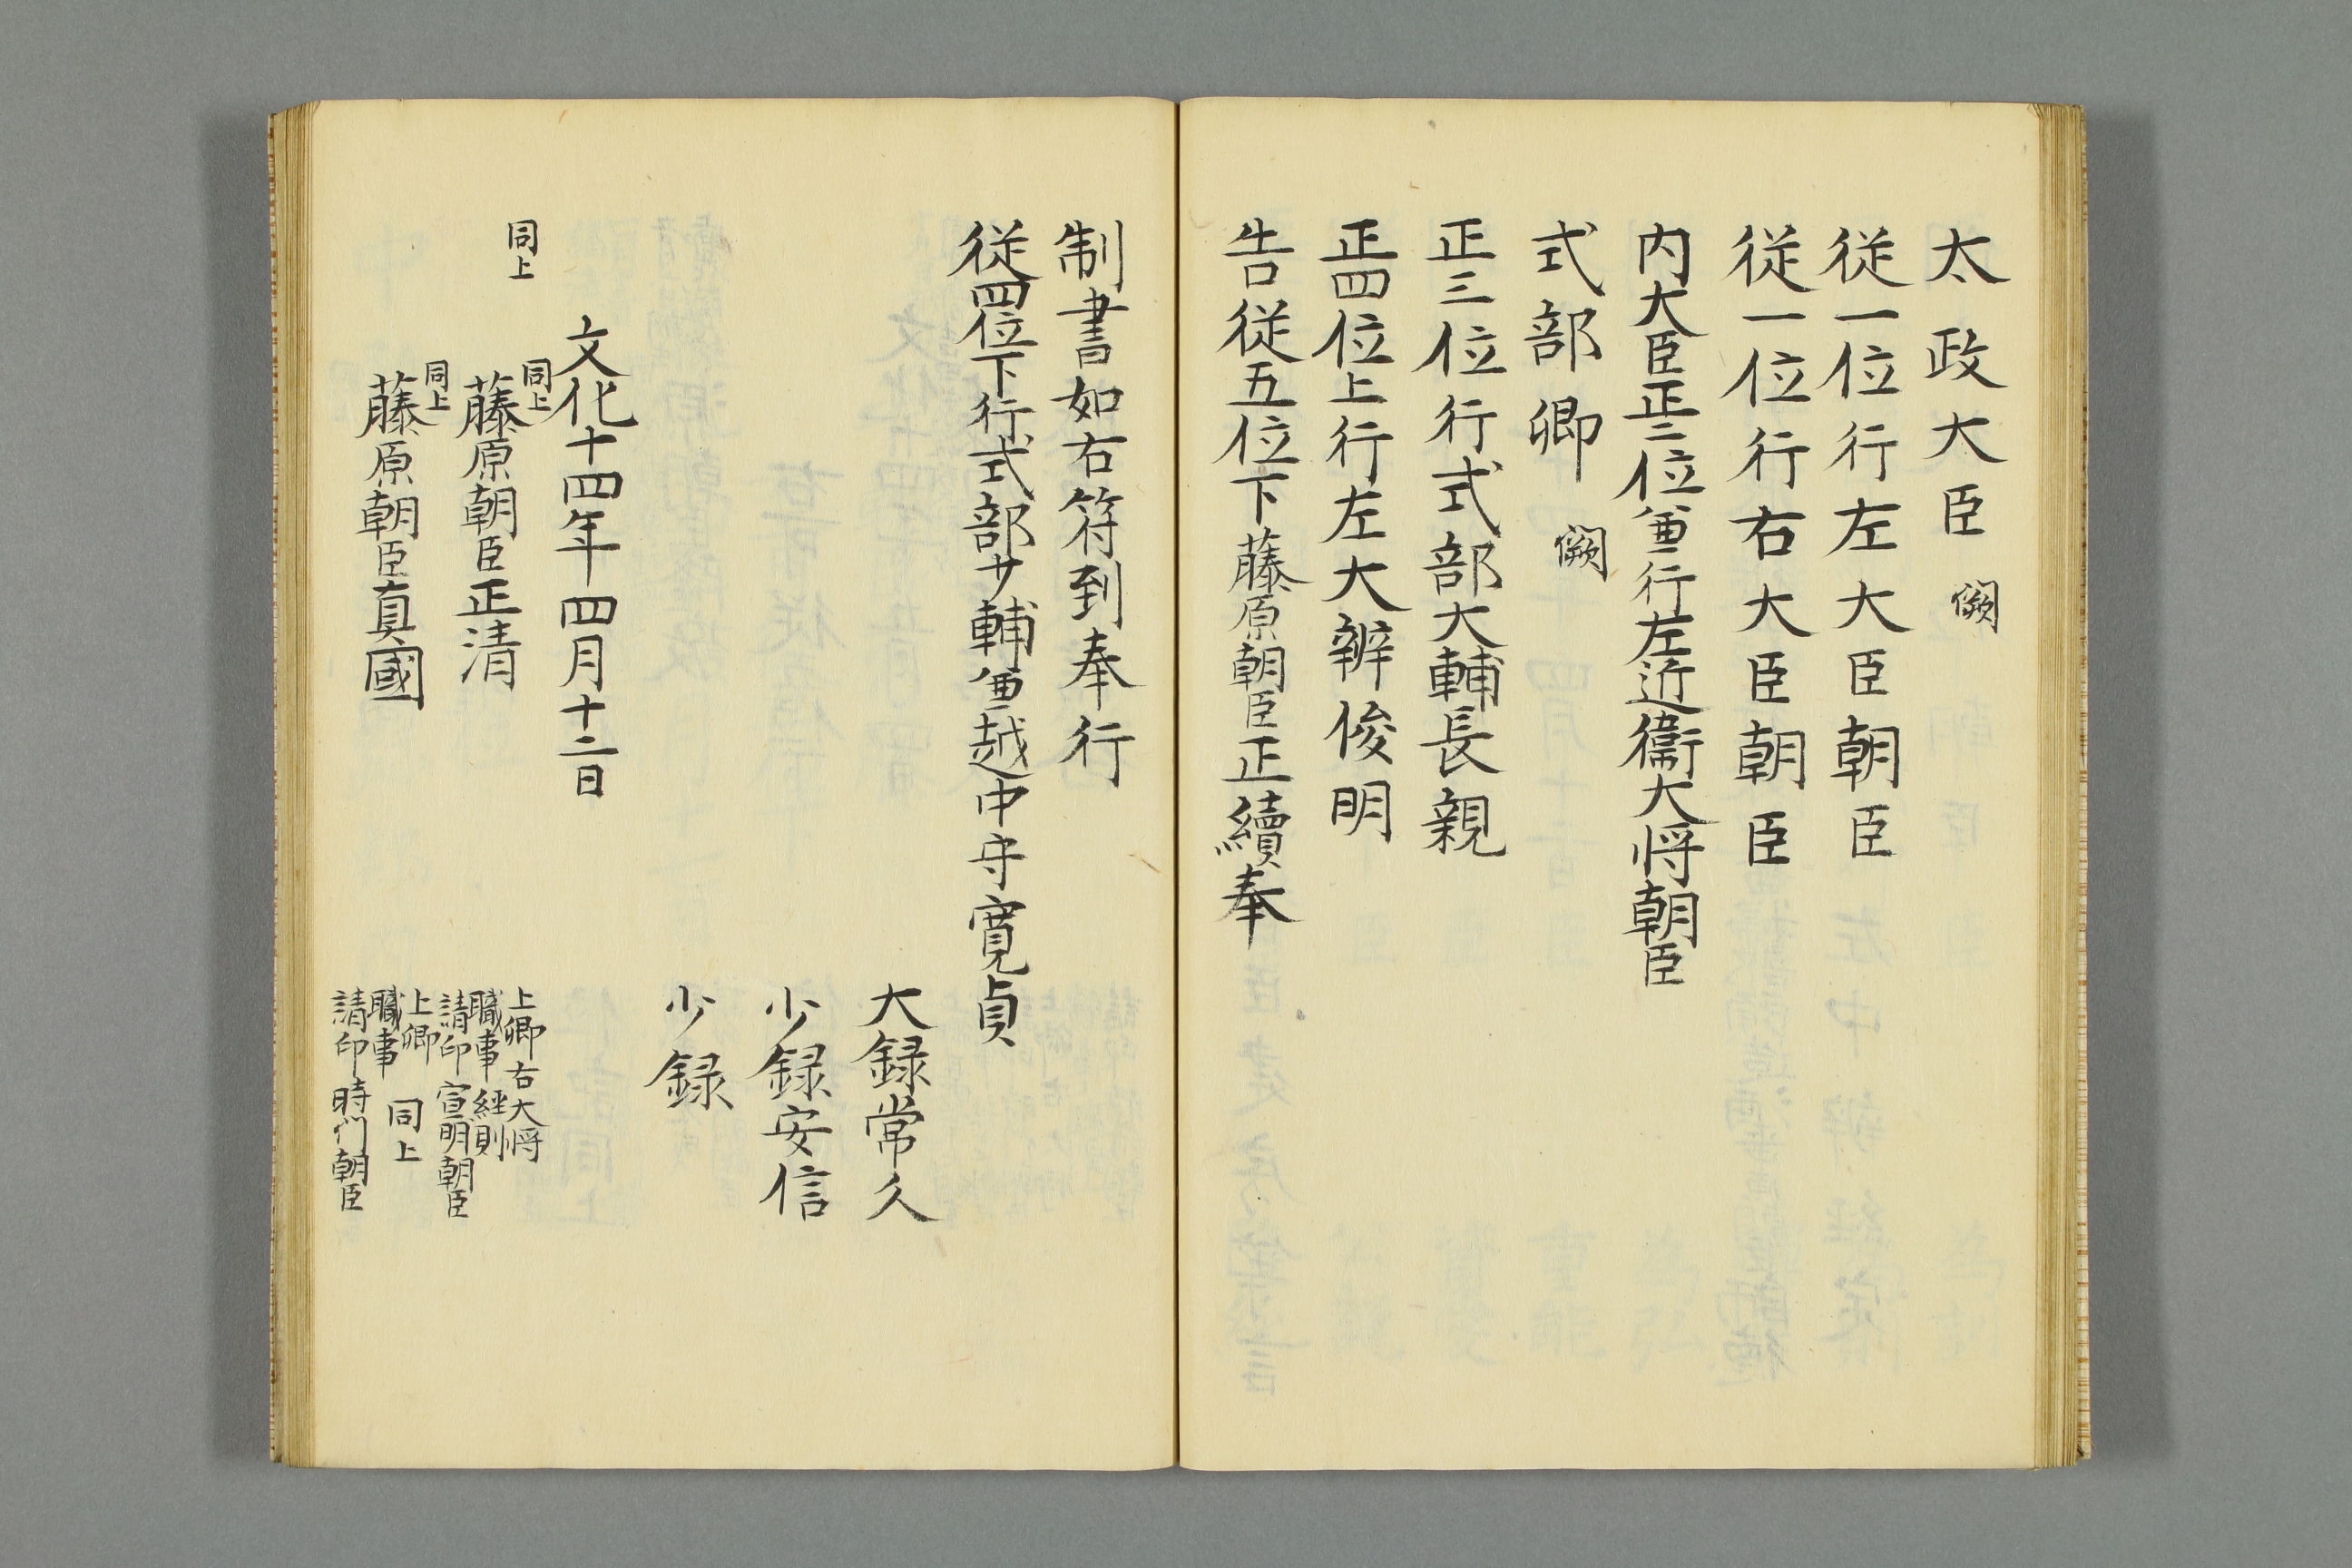 太政大臣 闕
従一位行左大臣朝臣
従一位行右大臣朝臣
内大臣正二位兼行左近衛大将朝臣
式部卿 闕
正三位行式部大輔長親
正四位上行左大辨俊明
告従五位下藤原朝臣正續奉
制書如右符到奉行
従四位下行式部少輔兼越中守寛貞
大録常久
少録安信
少録
文化十四年四月十二日
同上
同上
藤原朝臣正清
上卿右大将
職事経則
請印宣明朝臣
同上
藤原朝臣真國
上卿
職事 同上
請印時門朝臣